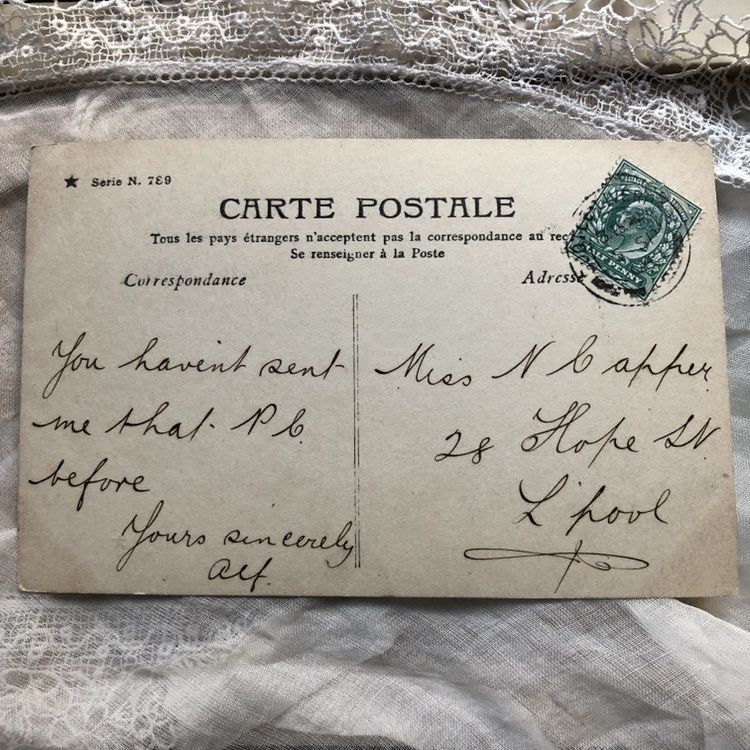 ★ Serie N. 789
CARTE POSTALE
Tous les pays étrangers n'acceptent pas la correspondance au rect
Se renseigner à la Poste
Correspondance
Adresse
You havent sent
me that P.C.
before
Yours sincerely
Alf.
Miss N Capper
28 Hope St
L'pool